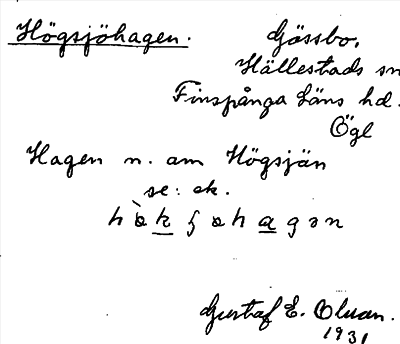 Högsjöhagen.
Gässbo,
Hällestads sn
Finspånga Läns hd.
Ögl
Hagen n. om Högsjön
se: ek.
Gustaf E. Oluan.
1931